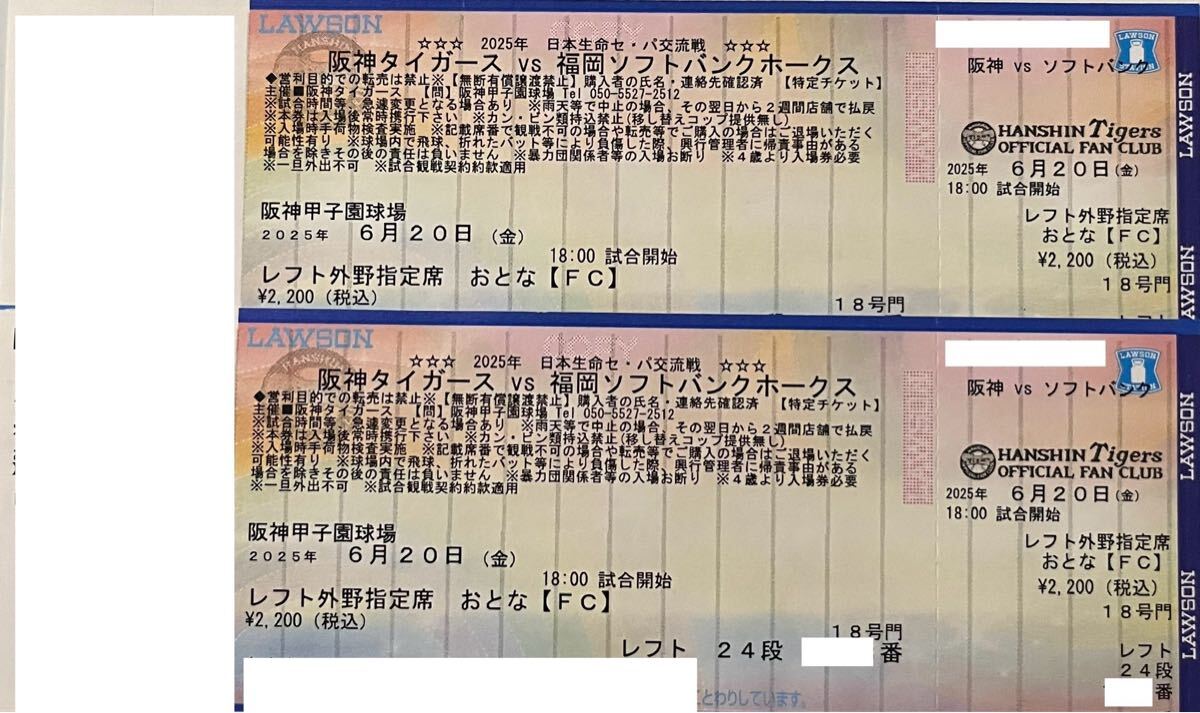 LAWSON
☆☆☆ 2025年 日本生命セ・パ交流戦 ☆☆☆
阪神タイガース vs 福岡ソフトバンクホークス
◆営利目的での転売は禁止※【無断有償譲渡禁止】購入者の氏名・連絡先確認済 【特定チケット】
主催■阪神タイガース 【問】阪神甲子園球場 Tel 050-5527-2512
※試合時間等、急遽変更となる場合あり ※雨天等で中止の場合、その翌日から2週間店舗で払戻
※本券は入場後常時携行下さい ※カン・ビン類持込禁止(移し替えコップ提供無し)
※入場時手荷物検査実施 ※記載席番で観戦不可の場合や転売等でご購入の場合はご退場いただく
可能性有り ※球場内で飛球、折れたバット等により負傷した際、興行管理者に帰責事由がある
場合を除きその後の責任は負いません ※暴力団関係者等の入場お断り ※4歳より入場券必要
※一旦外出不可 ※試合観戦契約約款適用
阪神甲子園球場
2025年 6月20日 (金)
18:00 試合開始
レフト外野指定席 おとな【FC】
¥2,200 (税込)
18号門
LAWSON
阪神 vs ソフトバンク
HANSHIN Tigers
OFFICIAL FAN CLUB
2025年 6月20日(金)
18:00 試合開始
レフト外野指定席
おとな【FC】
¥2,200 (税込)
18号門
LAWSON
AWSON
LAWSON
☆☆☆ 2025年 日本生命セ・パ交流戦 ☆☆☆
阪神タイガース vs 福岡ソフトバンクホークス
◆営利目的での転売は禁止※【無断有償譲渡禁止】購入者の氏名・連絡先確認済 【特定チケット】
主催■阪神タイガース 【問】阪神甲子園球場 Tel 050-5527-2512
※試合時間等、急遽変更となる場合あり ※雨天等で中止の場合、その翌日から2週間店舗で払戻
※本券は入場後常時携行下さい ※カン・ビン類持込禁止(移し替えコップ提供無し)
※入場時手荷物検査実施 ※記載席番で観戦不可の場合や転売等でご購入の場合はご退場いただく
可能性有り ※球場内で飛球、折れたバット等により負傷した際、興行管理者に帰責事由がある
場合を除きその後の責任は負いません ※暴力団関係者等の入場お断り ※4歳より入場券必要
※一旦外出不可 ※試合観戦契約約款適用
阪神甲子園球場
2025年 6月20日 (金)
18:00 試合開始
レフト外野指定席 おとな【FC】
¥2,200 (税込)
18号門
レフト 24段 番
とわりしています。
LAWSON
阪神 vs ソフトバンク
HANSHIN Tigers
OFFICIAL FAN CLUB
2025年 6月20日(金)
18:00 試合開始
レフト外野指定席
おとな【FC】
¥2,200 (税込)
18号門
レフト
24段
番
LAWSON
LAWSON